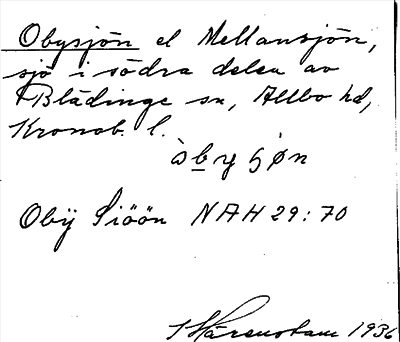 Obysjön el Mellansjön,
sjö i södra delen av
Blädinge sn, Allbo hd,
Kronob. l.
Obÿ Siöön NAH 29:70
1936